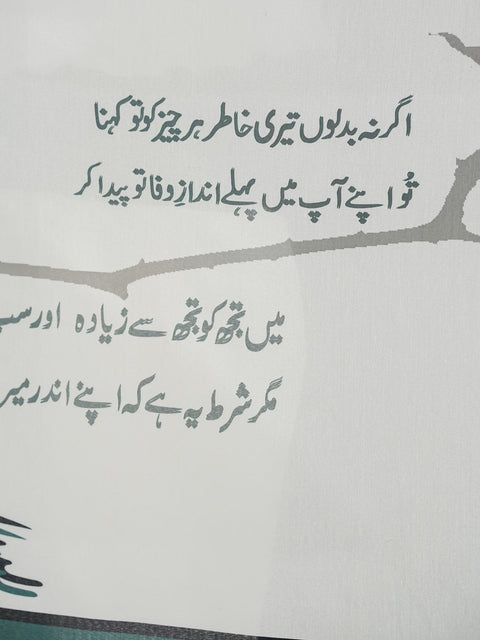 اگر نہ بدلوں تیری خاطر ہر چیز کو تو کہنا
تُو اپنے آپ میں پہلے اندازِ وفا تو پیدا کر
میں تجھ کو تجھ سے زیادہ اور سب
مگر شرط یہ ہے کہ اپنے اندر میر